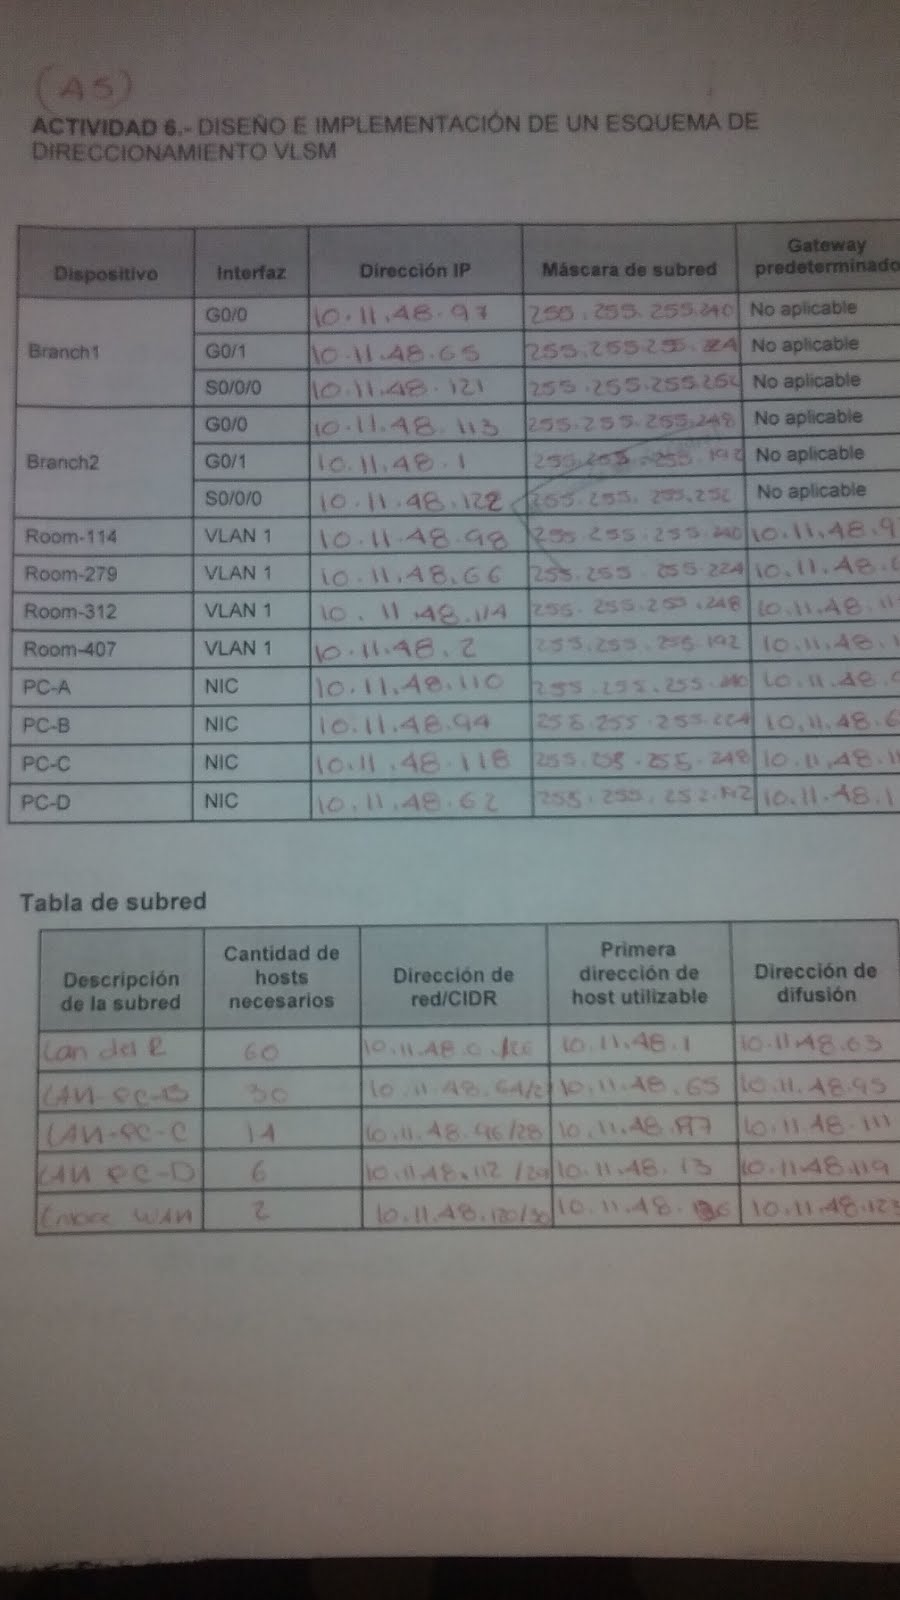 (A5)
ACTIVIDAD 6.- DISEÑO E IMPLEMENTACIÓN DE UN ESQUEMA DE
DIRECCIONAMIENTO VLSM
Dispositivo Interfaz Dirección IP Máscara de subred Gateway predeterminado
Branch1 G0/0 10.11.48.97 255.255.255.240 No aplicable
G0/1 10.11.48.65 255.255.255.224 No aplicable
S0/0/0 10.11.48.121 255.255.255.252 No aplicable
Branch2 G0/0 10.11.48.113 255.255.255.248 No aplicable
G0/1 10.11.48.1 255.255.255.192 No aplicable
S0/0/0 10.11.48.122 255.255.255.252 No aplicable
Room-114 VLAN 1 10.11.48.98 255.255.255.240 10.11.48.9
Room-279 VLAN 1 10.11.48.66 255.255.255.224 10.11.48.6
Room-312 VLAN 1 10.11.48.114 255.255.255.248 10.11.48.11
Room-407 VLAN 1 10.11.48.2 255.255.255.192 10.11.48.1
PC-A NIC 10.11.48.110 255.255.255.240 10.11.48.9
PC-B NIC 10.11.48.94 255.255.255.224 10.11.48.6
PC-C NIC 10.11.48.118 255.255.255.248 10.11.48.11
PC-D NIC 10.11.48.62 255.255.252.192 10.11.48.1
Tabla de subred
Descripción de la subred Cantidad de hosts necesarios Dirección de red/CIDR Primera dirección de host utilizable Dirección de difusión
Lan del R 60 10.11.48.0 /26 10.11.48.1 10.11.48.63
LAN-PC-B 30 10.11.48.64/2 10.11.48.65 10.11.48.95
LAN-PC-C 14 10.11.48.96/28 10.11.48.97 10.11.48.111
LAN PC-D 6 10.11.48.112 /29 10.11.48.13 10.11.48.119
Enlace WAN 2 10.11.48.120/30 10.11.48. 10.11.48.123